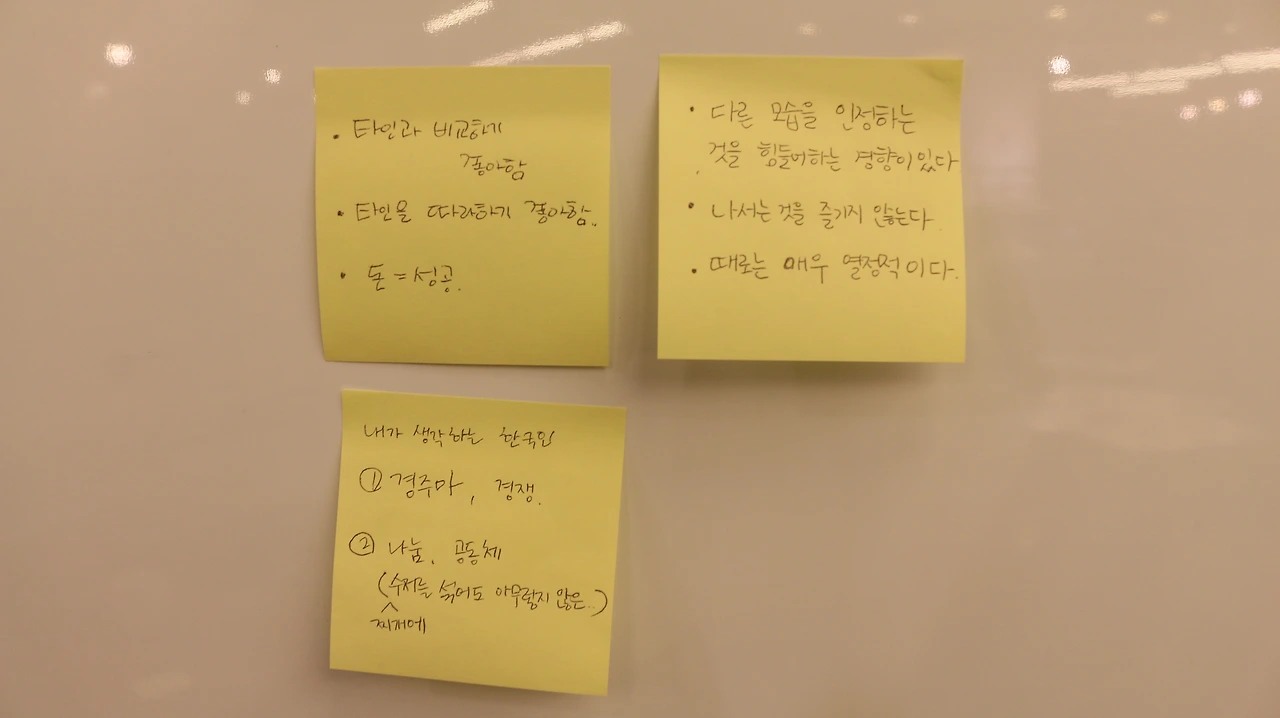 • 타인과 비교하기
좋아함
• 타인을 따라하기 좋아함.
• 돈 = 성공.
• 다른 모습을 인정하는
것을 힘들어하는 경향이 있다
• 나서는 것을 즐기지 않는다.
• 때로는 매우 열정적이다.
내가 생각하는 한국인
① 경주마, 경쟁.
② 나눔, 공동체
(수저를 섞어도 아무렇지 않은..)
찌개에